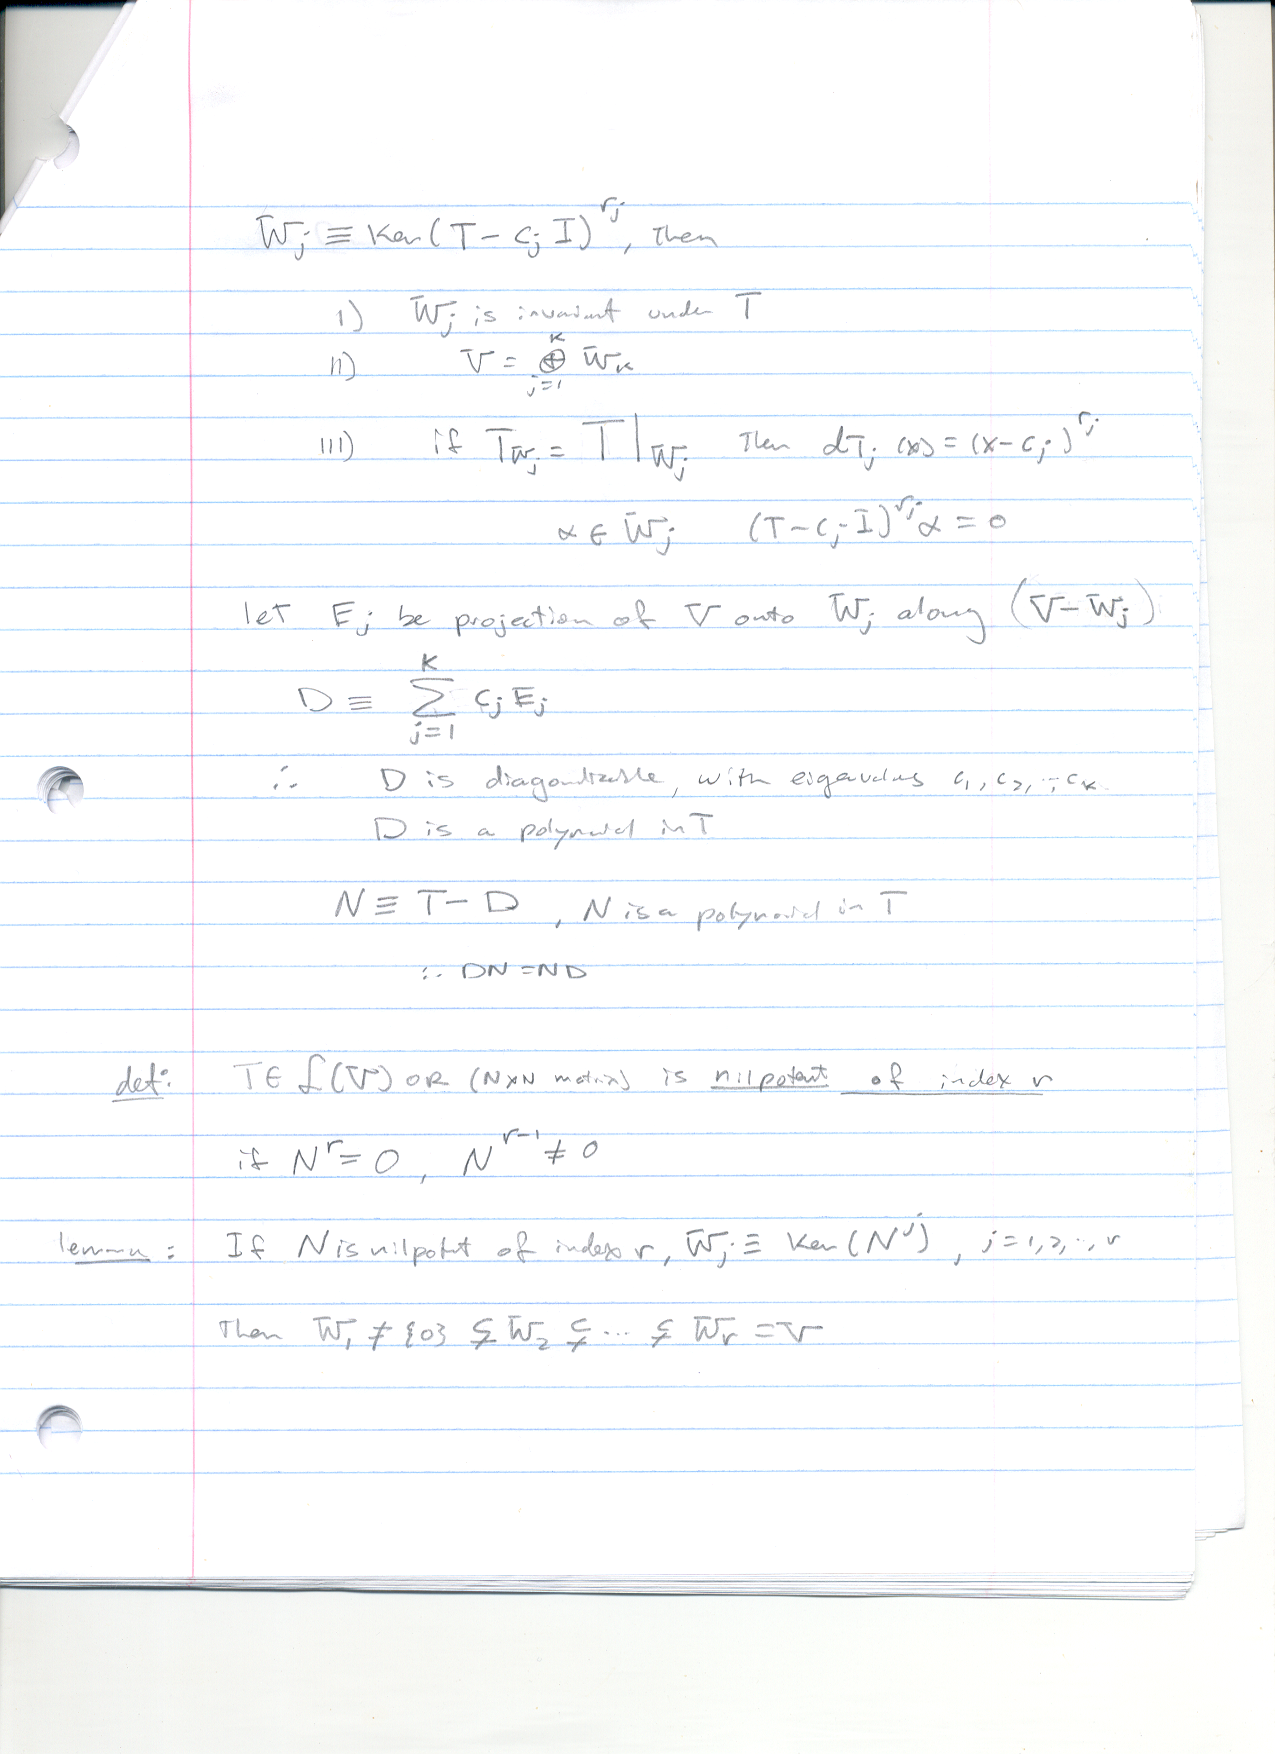 W̄ⱼ ≡ Ker(T - cⱼ I)^{rⱼ}, then
I) W̄ⱼ is invariant under T
II) V = ⊕_{j=1}^{K} W̄ₖ
III) if T_{W̄ⱼ} = T|_{W̄ⱼ} Then d_{Tⱼ}(x) = (x - cⱼ)^{rⱼ}
α ∈ W̄ⱼ (T - cⱼ I)^{rⱼ} α = 0
let Eⱼ be projection of V onto W̄ⱼ along (V - W̄ⱼ)
D ≡ ∑_{j=1}^{K} cⱼ Eⱼ
∴ D is diagonalizable, with eigenvalues c₁, c₂, .., cₖ.
D is a polynomial in T
N ≡ T - D, N is a polynomial in T
∴ DN = ND
def: T ∈ ℒ(V) OR (N×N matrix) is nilpotent of index r
if N^r = 0, N^{r-1} ≠ 0
lemma: If N is nilpotent of index r, W̄ⱼ ≡ Ker(N^j), j = 1, 2, .., r
Then W̄₁ ≠ {0} ⊊ W̄₂ ⊊ ... ⊊ W̄ᵣ = V